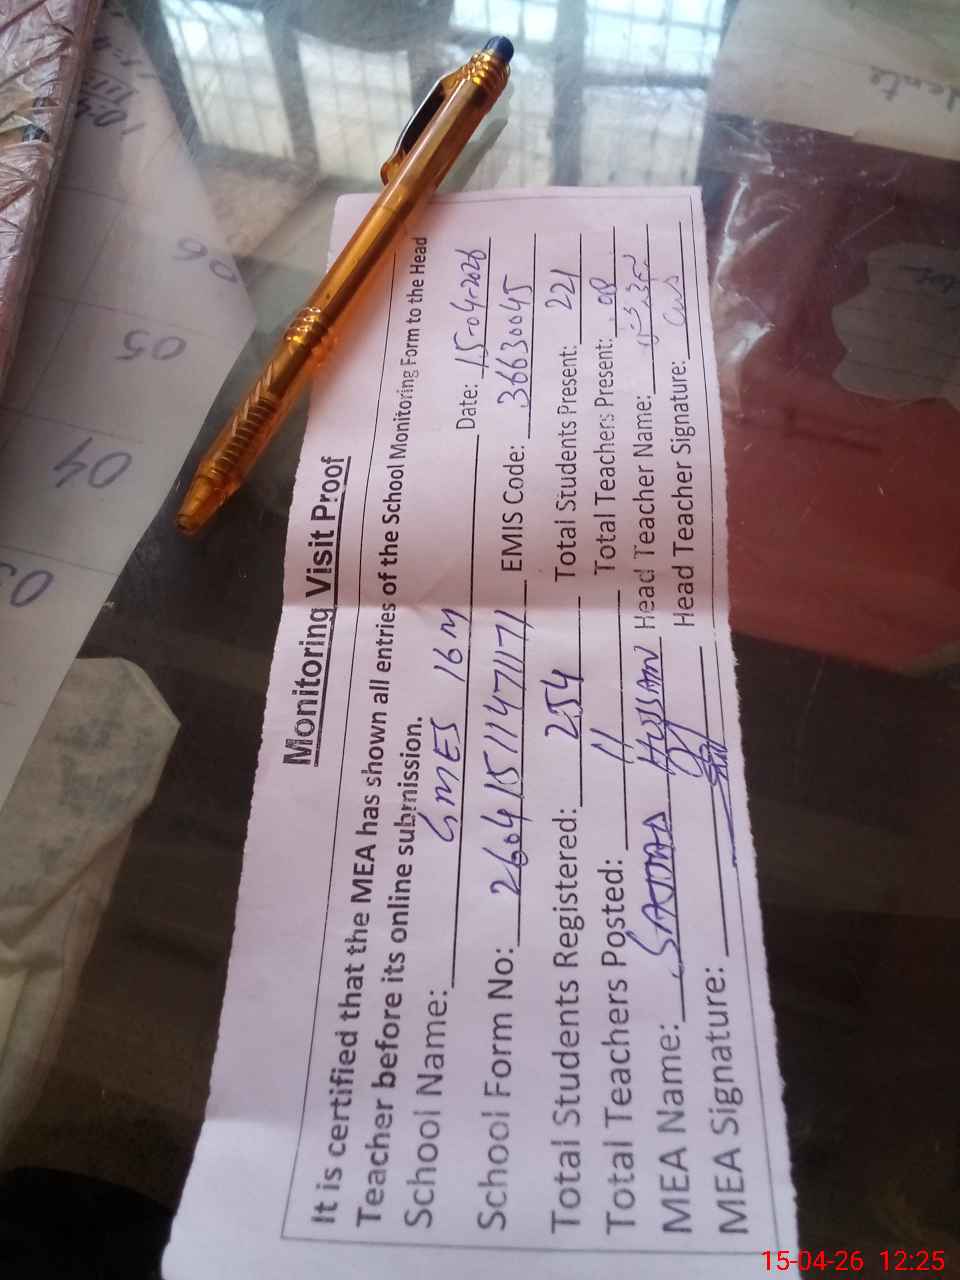 Monitoring Visit Proof
It is certified that the MEA has shown all entries of the School Monitoring Form to the Head
Teacher before its online submission.
School Name: GMES 16M Date: 15-04-2026
School Form No: EMIS Code: 36630045
Total Students Registered: 254 Total Students Present: 221
Total Teachers Posted: 11 Total Teachers Present: 08
MEA Name: SAJJAD HUSSAIN Head Teacher Name:
MEA Signature: Head Teacher Signature:
06
05
04
15-04-26 12:25